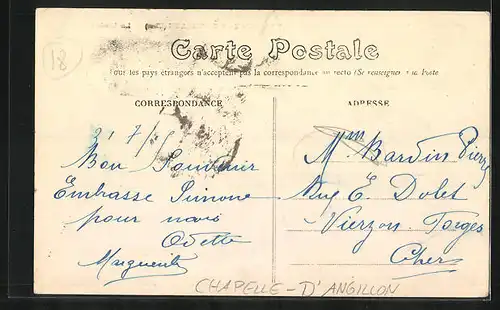 18
Carte Postale
Tous les pays étrangers n'acceptent pas la correspondance au recto (Se renseigner à la Poste
CORRESPONDANCE
ADRESSE
Bon Souvenir
Embrasse Simone
pour nous
Odette
Marguerite
Mme Bardin Pierre
Rue E. Dolet
Vierzon Forges
Cher
CHAPELLE-D'ANGILLON